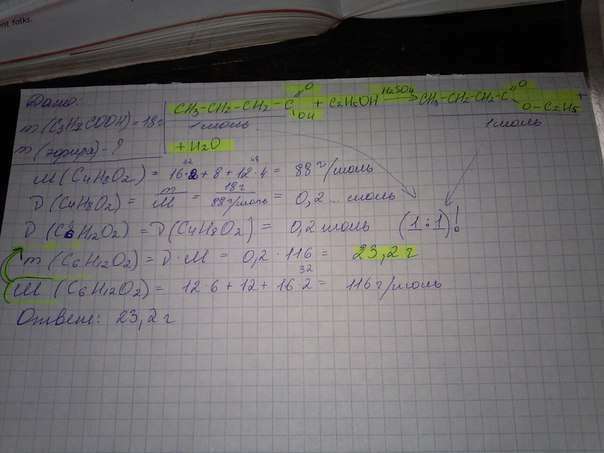 ent folks.
Дано:
m(C3H7COOH)=18г
m(эфира)-?
CH3-CH2-CH2-C =O OH + C2H5OH H2SO4→ CH3-CH2-CH2-C =O O-C2H5 +
1 моль 1 моль
+ H2O
M(C4H8O2) = 16·2 + 8 + 12·4 = 88 г/моль
32 48
ν(C4H8O2) = m/M = 18г/88г/моль = 0,2... моль
ν(C6H12O2) = ν(C4H8O2) = 0,2 моль (1:1)!
m(C6H12O2) = ν·M = 0,2·116 = 23,2 г
M(C6H12O2) = 12·6 + 12 + 16·2 = 116 г/моль
32
Ответ: 23,2 г